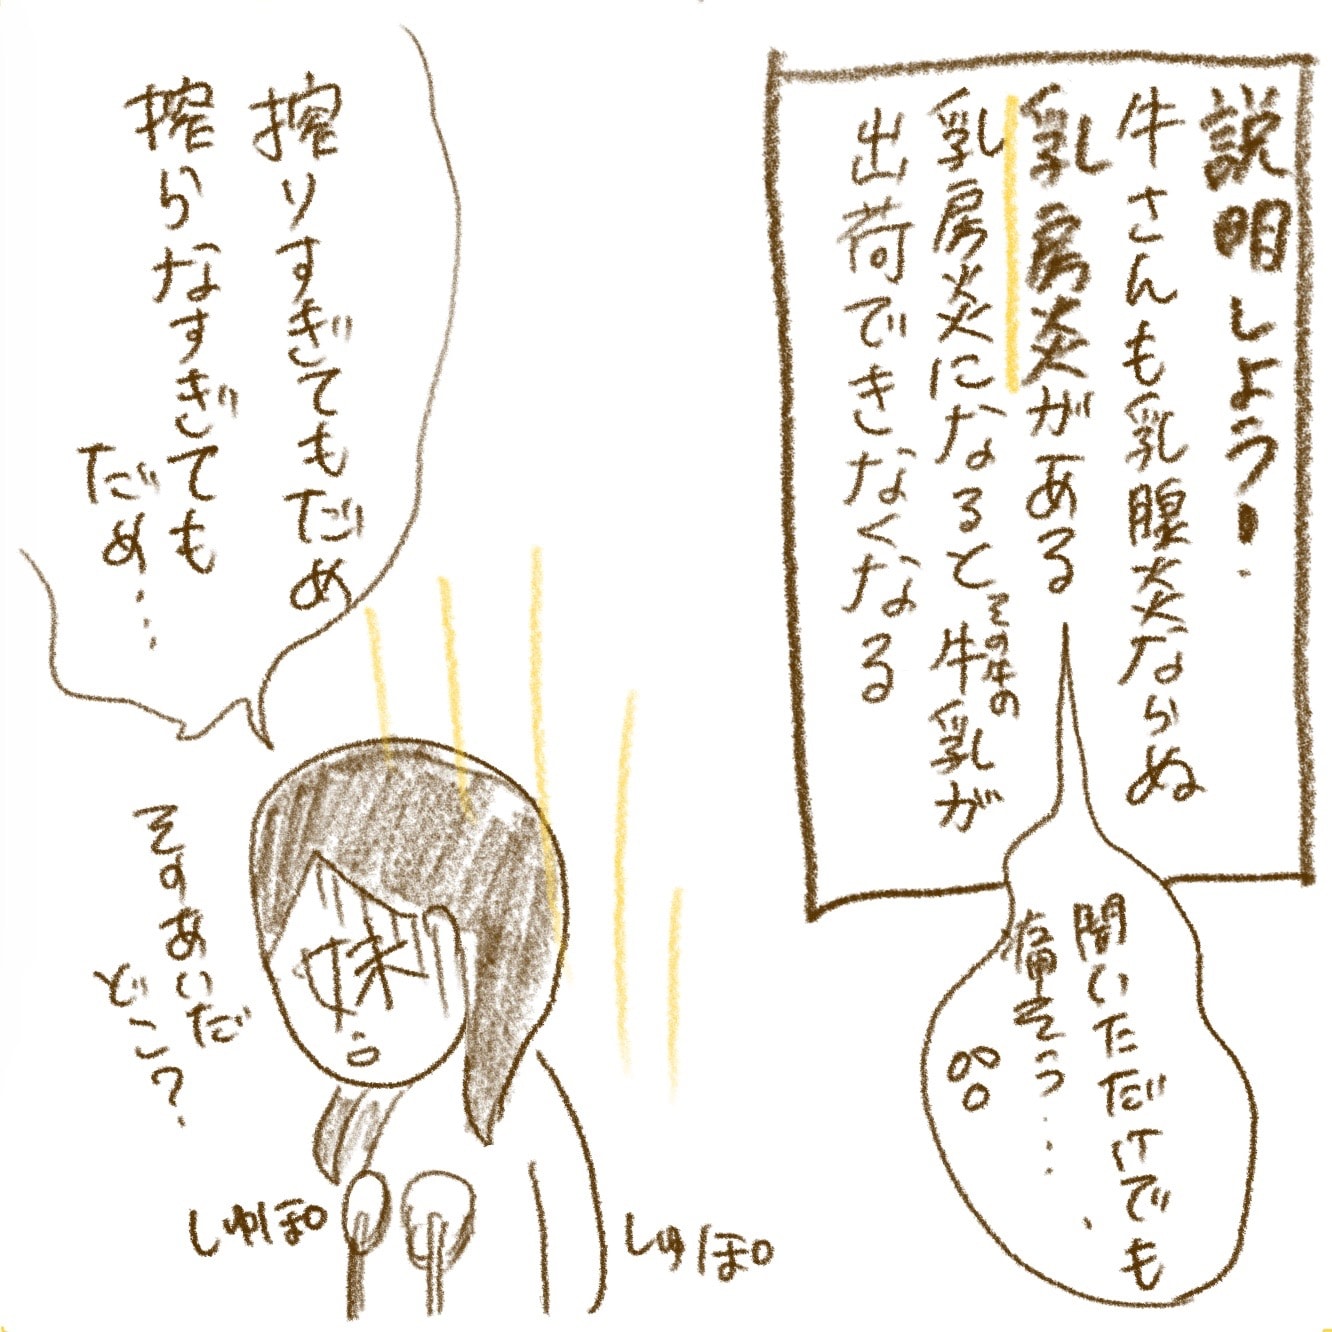 説明しよう!
牛さんも乳腺炎ならぬ
乳房炎がある
乳房炎になるとその牛の牛乳が
出荷できなくなる
聞いただけでも、
痛そう…
搾りすぎてもだめ
搾らなすぎても
だめ…
妹
そのあいだ
どこ?
しゅぽ
しゅぽ